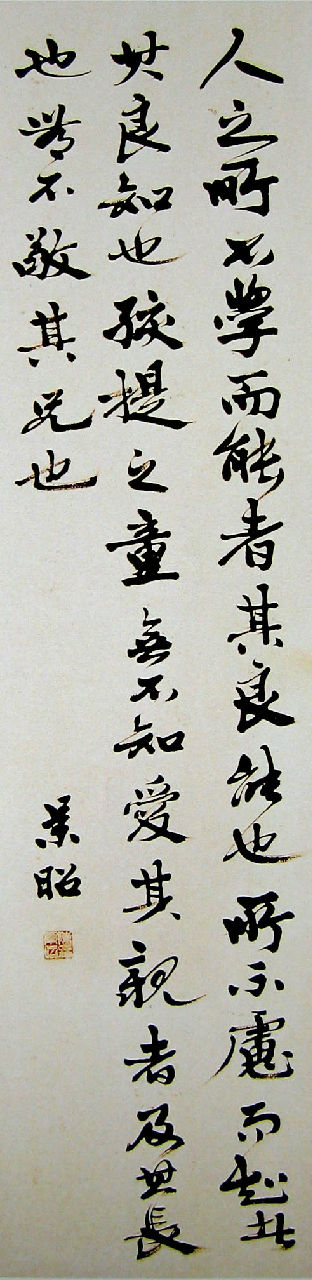 人之所不學而能者其良能也所不慮而知者
其良知也孩提之童無不知愛其親者及其長
也無不敬其兄也
景昭